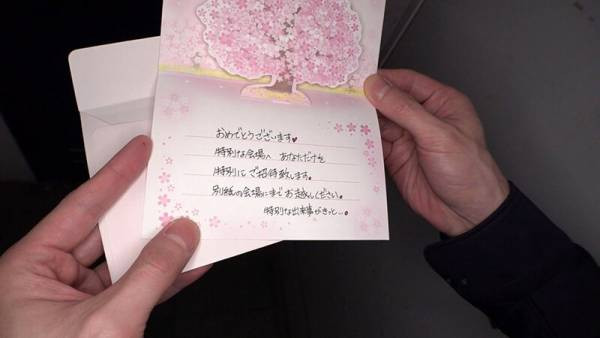 おめでとうございます♥
特別な会場へ あなただけを
特別に ご招待致します。
別紙の会場にまでお越しください。
特別な出来事がきっと…。